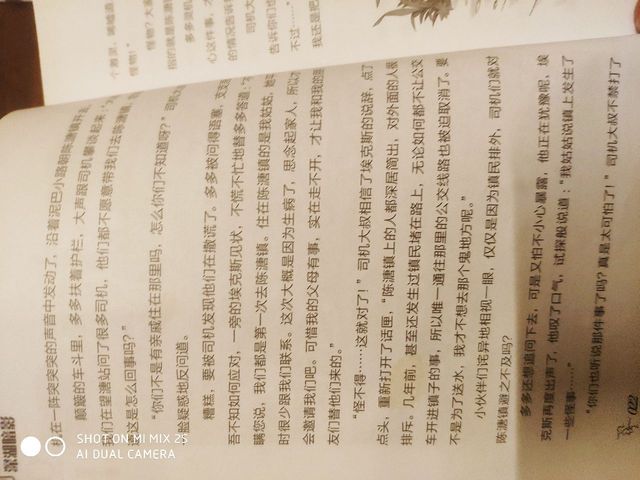 个激灵，
怪物！"
怪物？大家
心这件事，才
的情况告诉
司机大
告诉你们
不过……"
我还是把
在一阵突突突的声音中发动了，沿着泥巴小路朝陈溏镇开去。
颠簸的车斗里，多多扶着护栏，大声跟司机攀谈起来："
们在望溏站问了很多司机，他们都不愿意带我们去陈溏镇，
这是怎么回事吗？"
"你们不是有亲戚住在那里吗，怎么你们不知道呀？"司机
脸疑惑地反问道。
糟糕，要被司机发现他们在撒谎了。多多被问得语塞，
吾不知如何应对，一旁的埃克斯见状，不慌不忙地替多多答道：
瞒您说，我们都是第一次去陈溏镇。住在陈溏镇的是我姑姑，她
时很少跟我们联系。这次大概是因为生病了，思念起家人，所以才
会邀请我们吧。可惜我的父母有事，实在走不开，才让我和我的朋
友们替他们来的。"
"怪不得……这就对了！"司机大叔相信了埃克斯的说辞，点了
点头，重新打开了话匣，"陈溏镇上的人都深居简出，对外面的人很
排斥。几年前，甚至还发生过镇民堵在路上，无论如何都不让公交
车开进镇子的事，所以唯一通往那里的公交线路也被迫取消了。要
不是为了送水，我才不想去那个鬼地方呢。"
小伙伴们诧异地相视一眼，仅仅是因为镇民排外，司机们就对
陈溏镇避之不及吗？
多多还想追问下去，可是又怕不小心暴露，他正在犹豫呢，埃
克斯再度出声了，他叹了口气，试探般说道："我姑姑说镇上发生了
一些怪事……"
"你们也听说那件事了吗？真是太可怕了！"司机大叔不禁打了
022
SHOT ON MI MIX 2S
AI DUAL CAMERA